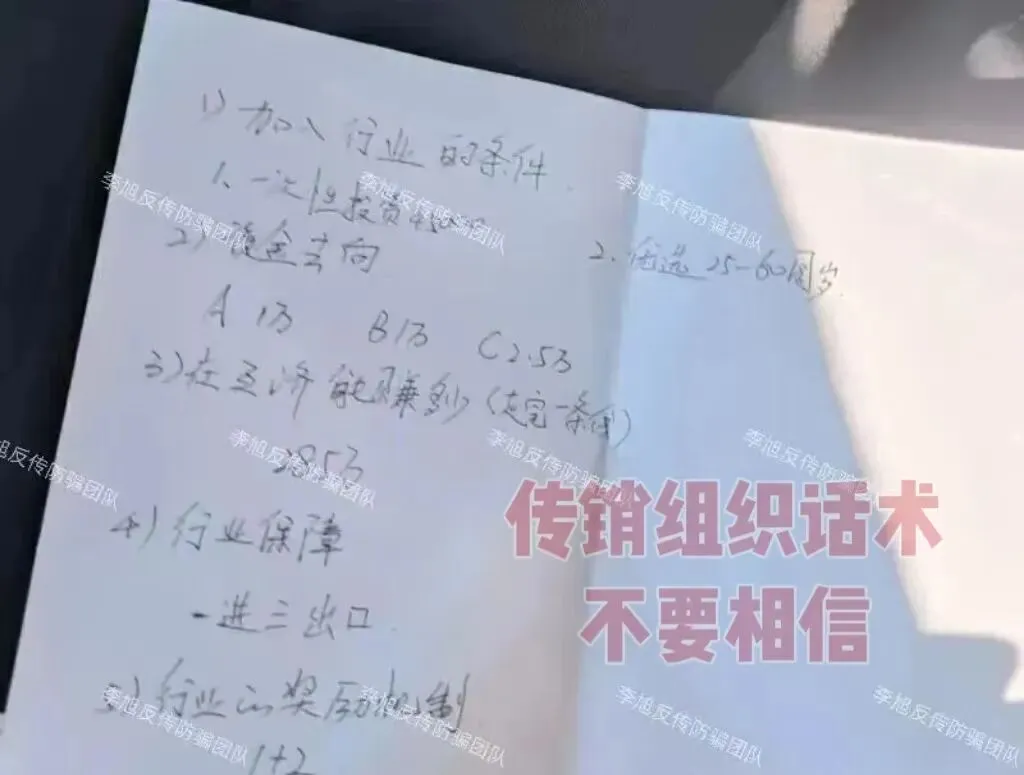 1) 加入行业的条件.
1、一次性投资
2、任选 25-60周岁.
2) 资金去向
A 1万 B 1万 C 2.5万
3) 在互济能赚多少(走完一条件)
285万
4) 行业保障
一进三出口.
5) 行业的奖励机制
1+2
传销组织话术
不要相信
李旭反传防骗团队
李旭反传防骗团队
李旭反传防骗团队
李旭反传防骗团队
李旭反传防骗团队
李旭反传防骗团队
李旭反传防骗团队
旭反传防骗团队
李旭反传防骗团队
李旭反传防骗团队
李旭反传防骗团队